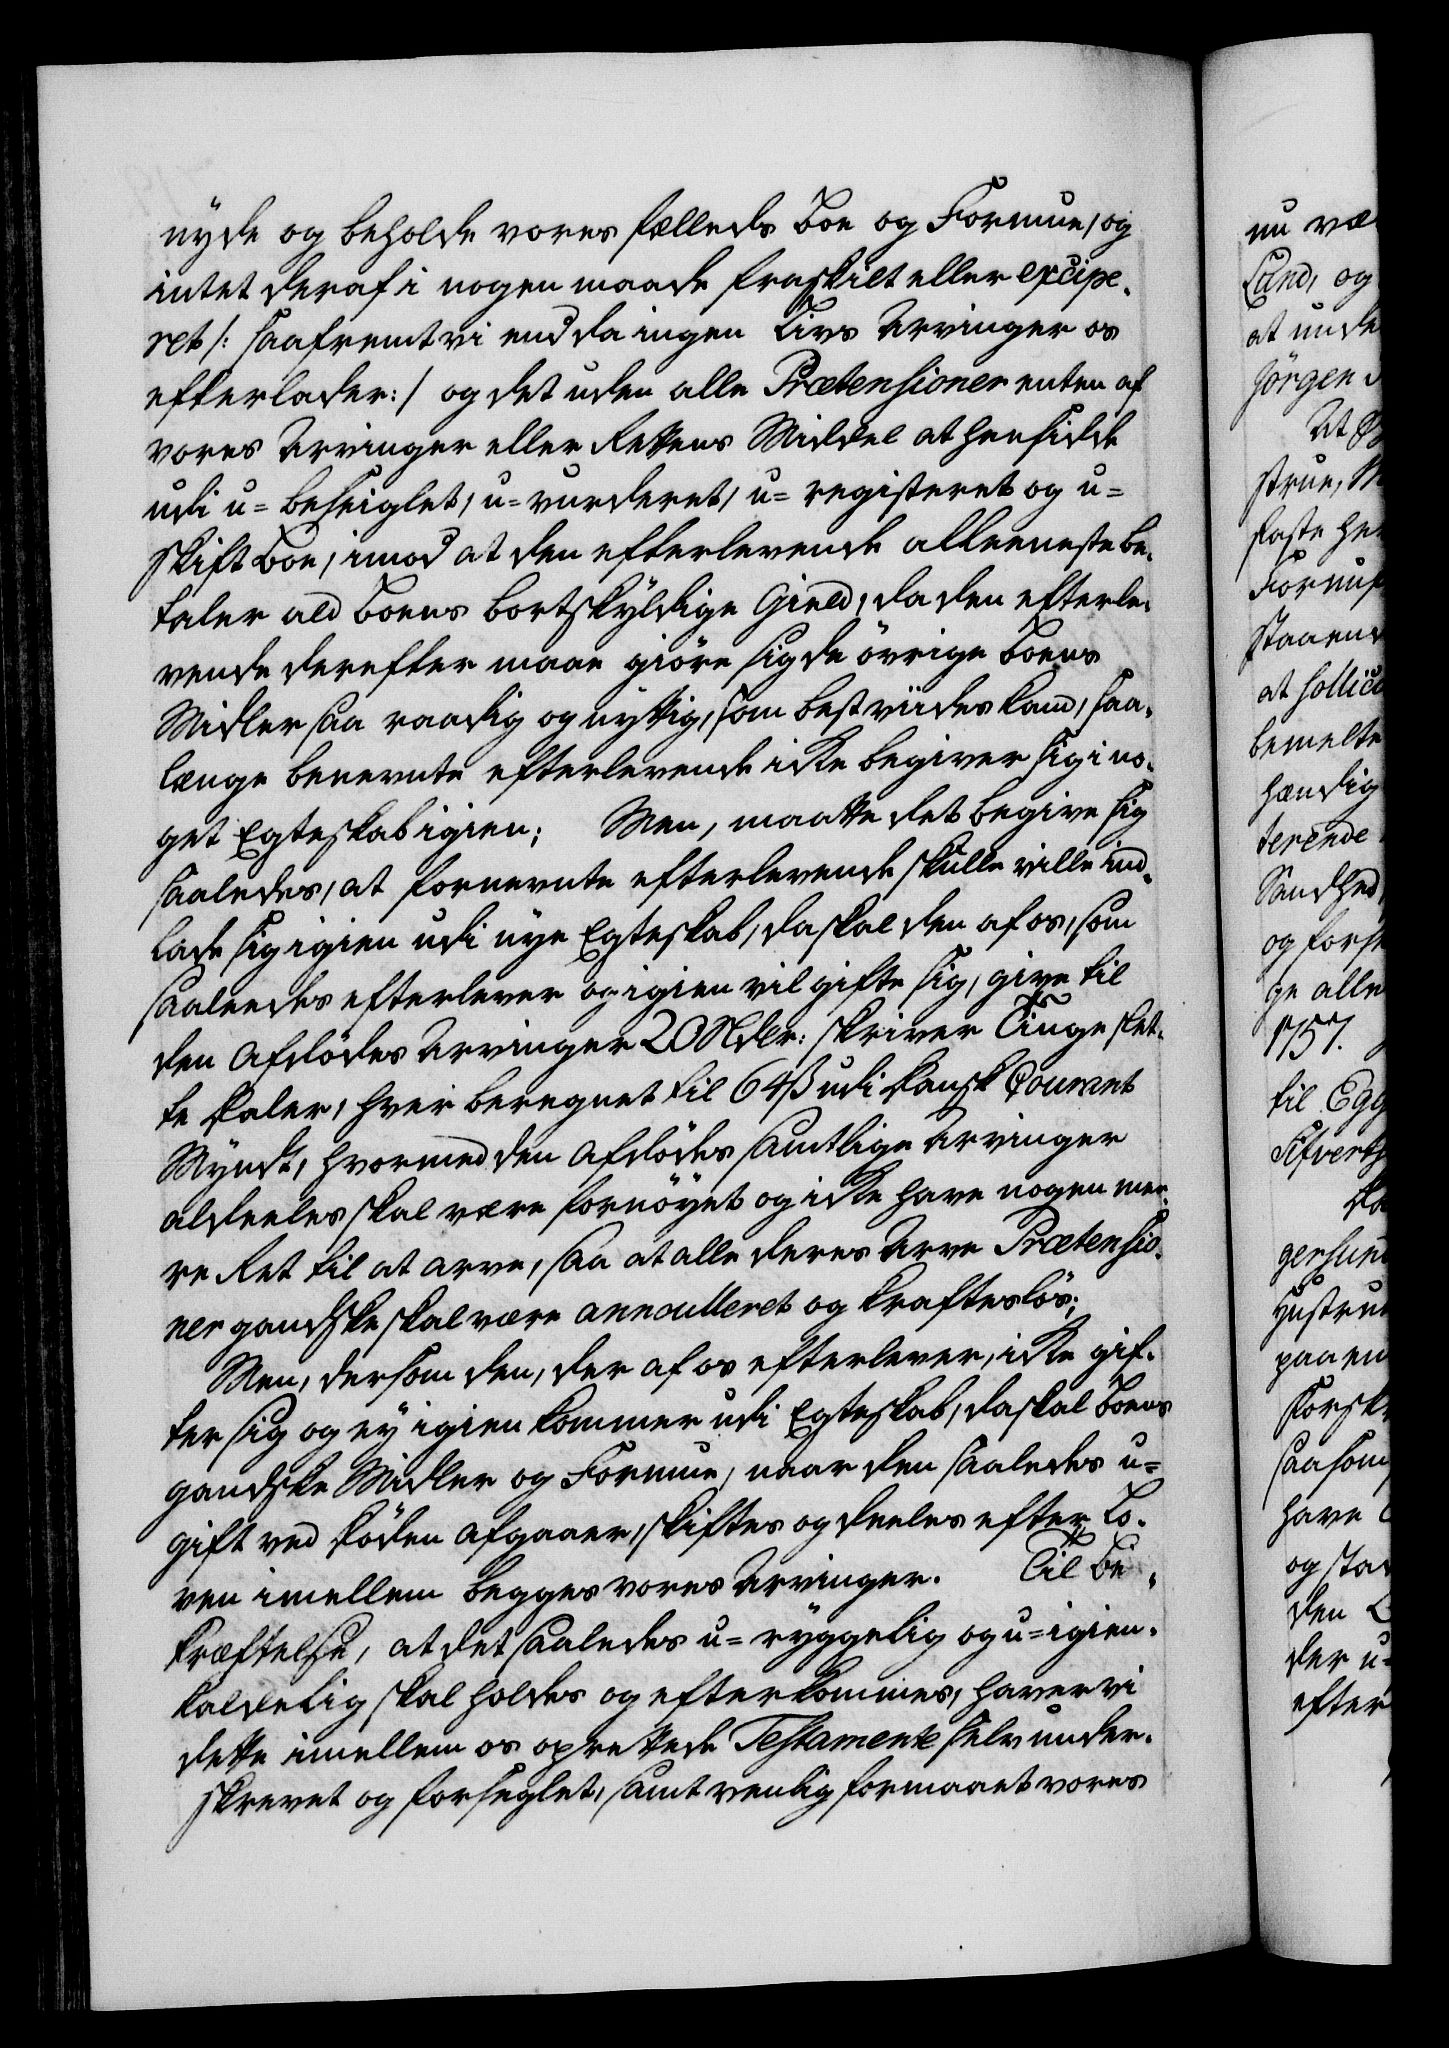 nyde og beholde vores fælleds Boe og Formue, og
intet deraf i nogen maade fraskilt eller excipe-
ret /: saafremt vi end da ingen Livs Arvinger os
efterlader: / og det uden alle Prætensioner enten af
vores Arvinger eller Rettens Middel at hensidde
udi u= beseiglet, u= vurderet, u= registeret og u=
skift Boe, imod at den efterlevende alleeneste be-
taler ald Boens bortskyldige Gield, da den efterle-
vende derefter maae giöre sig de övrige Boens
Midler saa raadig og nyttig, som best viides kand, saa-
længe benevnte efterlevende icke begiver sig i no-
get Egteskab igien; Men, maatte det begive sig
saaledes, at fornevnte efterlevende skulle ville ind-
lade sig igien udi nye Egteskab, da skal den af os, som
saaleedes efterlever og igien vil gifte sig, give til
den Afdödes Arvinger 20 Sldlr: skriver Tiuge slet-
te Daler, hver beregnet til 64 β udi dansk Courant
Myndt, hvormed den Afdödes samtlige Arvinger
aldeeles skal være fornöyet og icke have nogen mee-
re Ret til at arve, saa at alle deres Arve Prætensio-
ner gandske skal være annulleret og kraftesløs;
Men, dersom den, der af os efterlever, icke gif-
ter sig og ey igien kommer udi Egteskab, da skal Boens
gandske Midler og Formue, naar den saaledes u=
gift ved Döden afgaaer, skiftes og deeles efter Lo-
ven imellem begges vores Arvinger. Til Be-
kræftelse, at det saaledes u= ryggelig og u= igien-
kaldelig skal holdes og efterkommes, haver vi
dette imellem os oprettede Testamente selv under-
skrevet og forseglet, samt venlig formaaet vores
nu væ
Lund, og
at unde
Jörgen
At
strue, M
kaste he
Formu
staaend
at sollici
bemelte
hændig
terende
Sandhed
og forse
ge alle
1757.
til Egg
Tifverts
Da
gersund
Hustru
paa en
forsk
saasom
have
og stad
den
der u=
efter